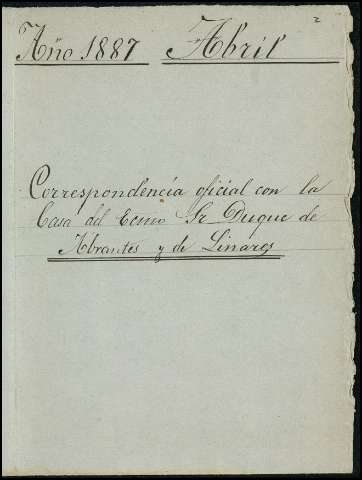 2
Año 1887 Abril
Correspondencia oficial con la
Casa del Ecmo Sr Duque de
Abrantes y de Linares